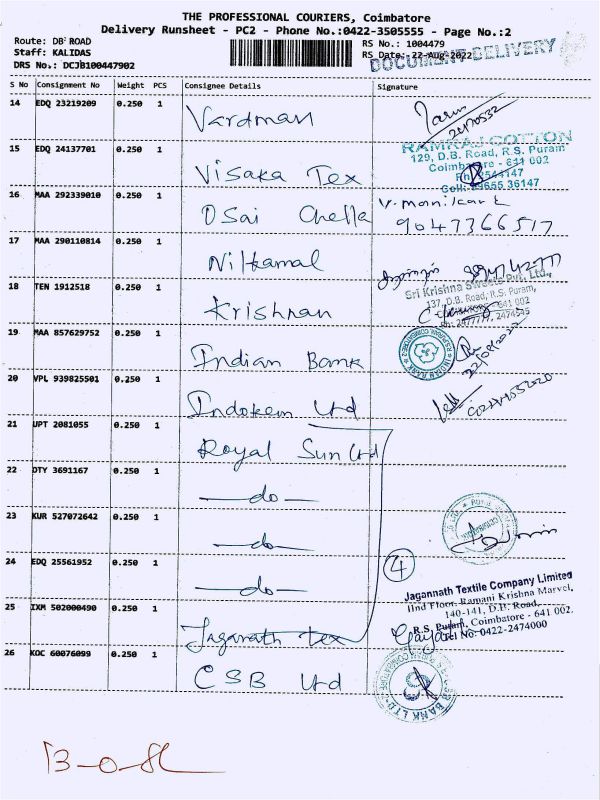 THE PROFESSIONAL COURIERS, Coimbatore
Delivery Runsheet - PC2 - Phone No.:0422-3505555 - Page No.:2
Route: DB ROAD
RS No.: 1004479
Staff: KALIDAS
RS Date:-22-Aug-2022
DRS No.: DCJB100447902
DOCUMENT DELIVERY
S No Consignment No Weight PCS Consignee Details Signature
14 EDQ 23219209 0.250 1 Vardman
15 EDQ 24137701 0.250 1 Visaka Tex
RAMRAJ COTTON
129, D.B. Road, R.S. Puram
Coimbatore - 641 002
16 MAA 292339010 0.250 1 OSai Chella V. manikand
9047366517
17 MAA 290110814 0.250 1 Nilkamal
18 TEN 1912518 0.250 1 Krishnan
Sri Krishna Sweets Pvt. Ltd.,
137, D.B. Road, R.S. Puram,
COIMBATORE - 641 002
19 MAA 857629752 0.250 1 Indian Bank
22/08/2022
20 VPL 939825501 0.250 1 Indokem Ltd
21 UPT 2081055 0.250 1 Royal Sun Ltd
22 DTY 3691167 0.250 1 —do—
23 KUR 527072642 0.250 1 —do—
24 EDQ 25561952 0.250 1 —do—
4
Jagannath Textile Company Limited
IInd Floor, Ramani Krishna Marvel,
140-141, D.B. Road,
R.S. Puram, Coimbatore - 641 002.
Tel No: 0422-2474000
25 IXM 502000490 0.250 1 Jaganath tex
26 KOC 60076099 0.250 1 CSB Ltd